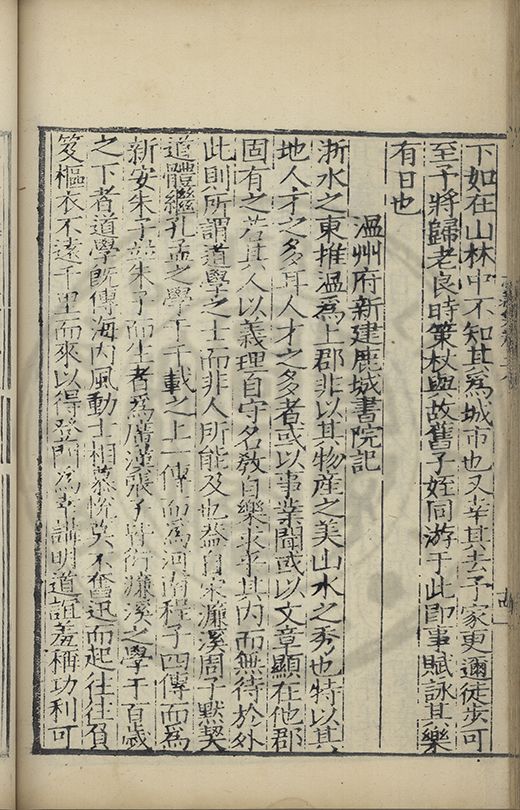 下如在山林中不知其為城市也又幸其去予家更邇徒步可
至予將歸老良時策杖與故舊子姪同游于此即事賦詠其樂
有日也
溫州府新建鹿城書院記
浙水之東推溫為上郡非以其物產之美山水之秀也特以其
地人才之多耳人才之多者或以事業聞或以文章顯在他郡
固有之若其人以義理自守名教自樂求乎其內而無待於外
此則所謂道學之士而非人所能及也蓋自宋濂溪周子默契
道體繼孔孟之學于千載之上一傳而為河南程子四傳而為
新安朱子並朱子而生者為廣漢張子皆衍濂溪之學于百歲
之下者道學既傳海內風動士相慕悅莫不奮迅而起往往負
笈樞衣不遠千里而來以得登門為幸講明道誼羞稱功利可